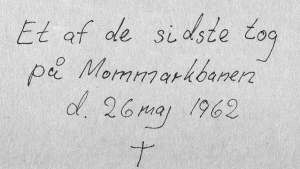 Et af de sidste tog
på Mommarkbanen
d. 26 maj 1962
†